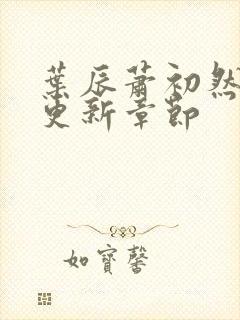 葉辰蕭初然
更新章節
如寶馨